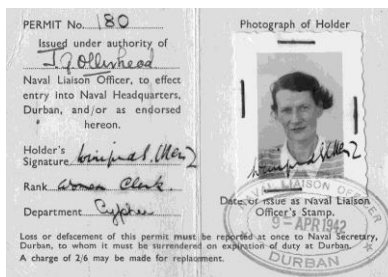 PERMIT No. 180
Issued under authority of
J.G. Ollerhead
Naval Liaison Officer, to effect
entry into Naval Headquarters,
Durban, and/or as endorsed
hereon.
Holder's
Signature
Rank Women Clerk.
Department Cypher
Photograph of Holder
Date of issue as Naval Liaison
Officer's Stamp.
NAVAL LIAISON OFFICER
9-APR 1942
DURBAN
Loss or defacement of this permit must be reported at once to Naval Secretary,
Durban, to whom it must be surrendered on expiration of duty at Durban.
A charge of 2/6 may be made for replacement.